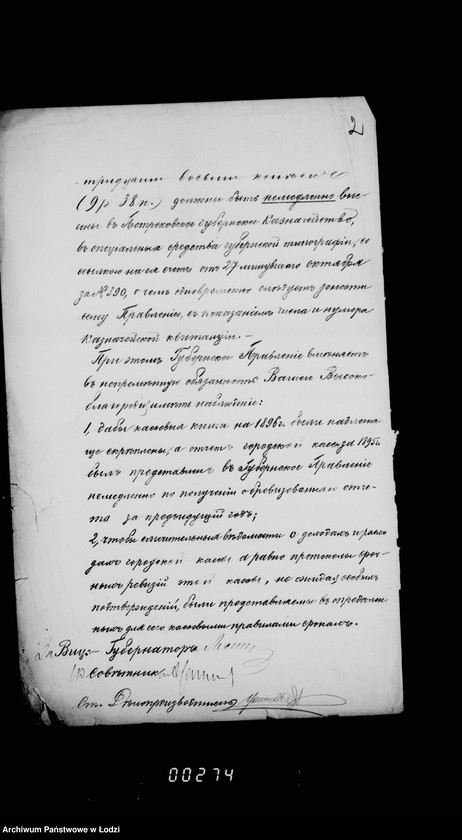 2
тридцати восьми копѣекъ
(9 р. 38 к.) должны быть немедленно вне-
сены въ Петроковское Губернское Казначейство,
въ спеціальныя средства губернской типографіи, со
ссылкою на ея счетъ отъ 27 минувшаго октября
за № 590, о чемъ одновременно слѣдуетъ донести
сему Правленію, съ показаніемъ числа и нумера
казначейской квитанціи. —
При этомъ Губернское Правленіе вмѣняетъ
въ непремѣнную обязанность Вашего Высоко-
благородія имѣть наблюденіе:
1, дабы кассовыя книги на 1896 г. были надлежа-
ще скрѣплены, а отчетъ городской кассы за 1895 г.
былъ представленъ въ Губернское Правленіе
немедленно по полученіи обревизованнаго отче-
та за предъидущій годъ;
2, чтобы сличительныя вѣдомости о доходахъ и расхо-
дахъ городской кассы а равно протоколы сроч-
ныхъ ревизій этой кассы, не ожидая особыхъ
подтвержденій, были представляемы въ опредѣлен-
ныхъ для сего кассовыми правилами срокахъ.
За Вице-Губернатора
Совѣтникъ
Ст. Дѣлопроизводитель
00274
Archiwum Państwowe w Łodzi